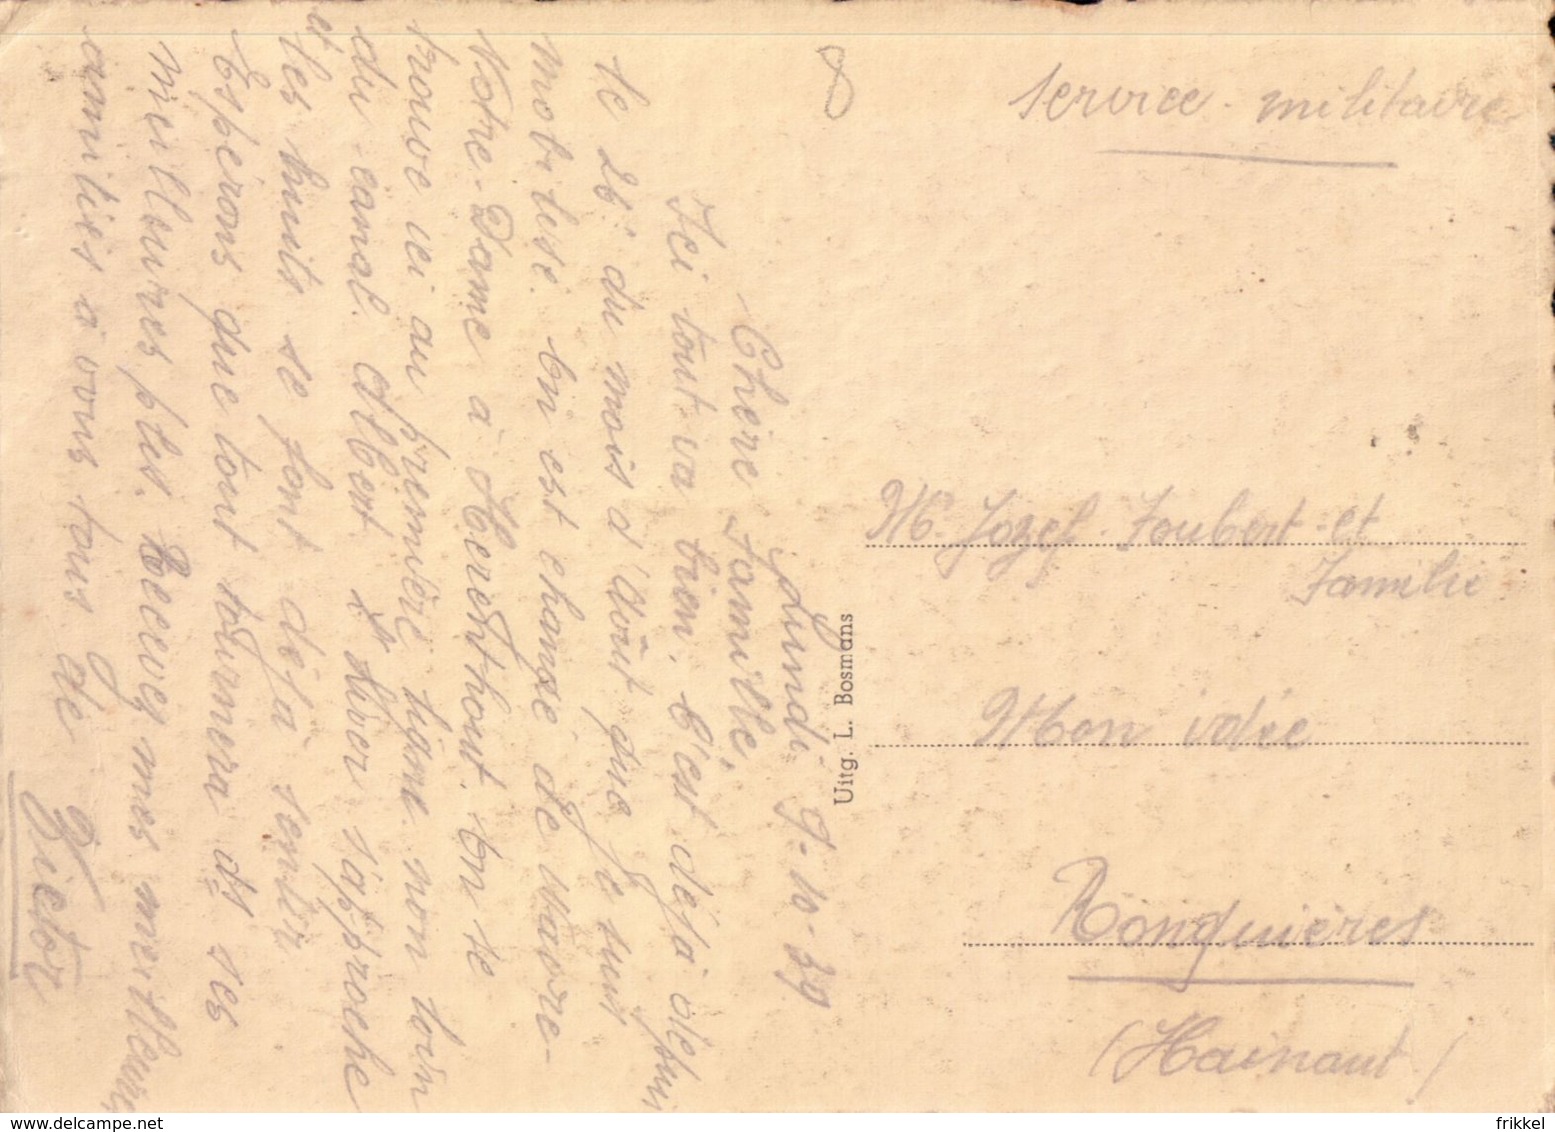 8
Service - militaire
Lundi 9-10-39
Chère Famille,
Ici tout va bien. C'est déjà de puis
le 26 du mois d'août que je suis
mobilisé. On est changé de Wavre-
Notre-Dame à Herenthout. On se
trouve ici au première ligne non loin
du canal Albert. L'hiver s'approche
et
les nuits se font déjà sentir
Espérons que tout tournera ds ses
meilleures plis. Recevez mes meilleures
amitiés à vous tous de
Victor
Uitg. L. Bosmans
Mr. Jozef Joubert et
Famille
Mon idée
Ronquières
(Hainaut)
www.delcampe.net
frikkel